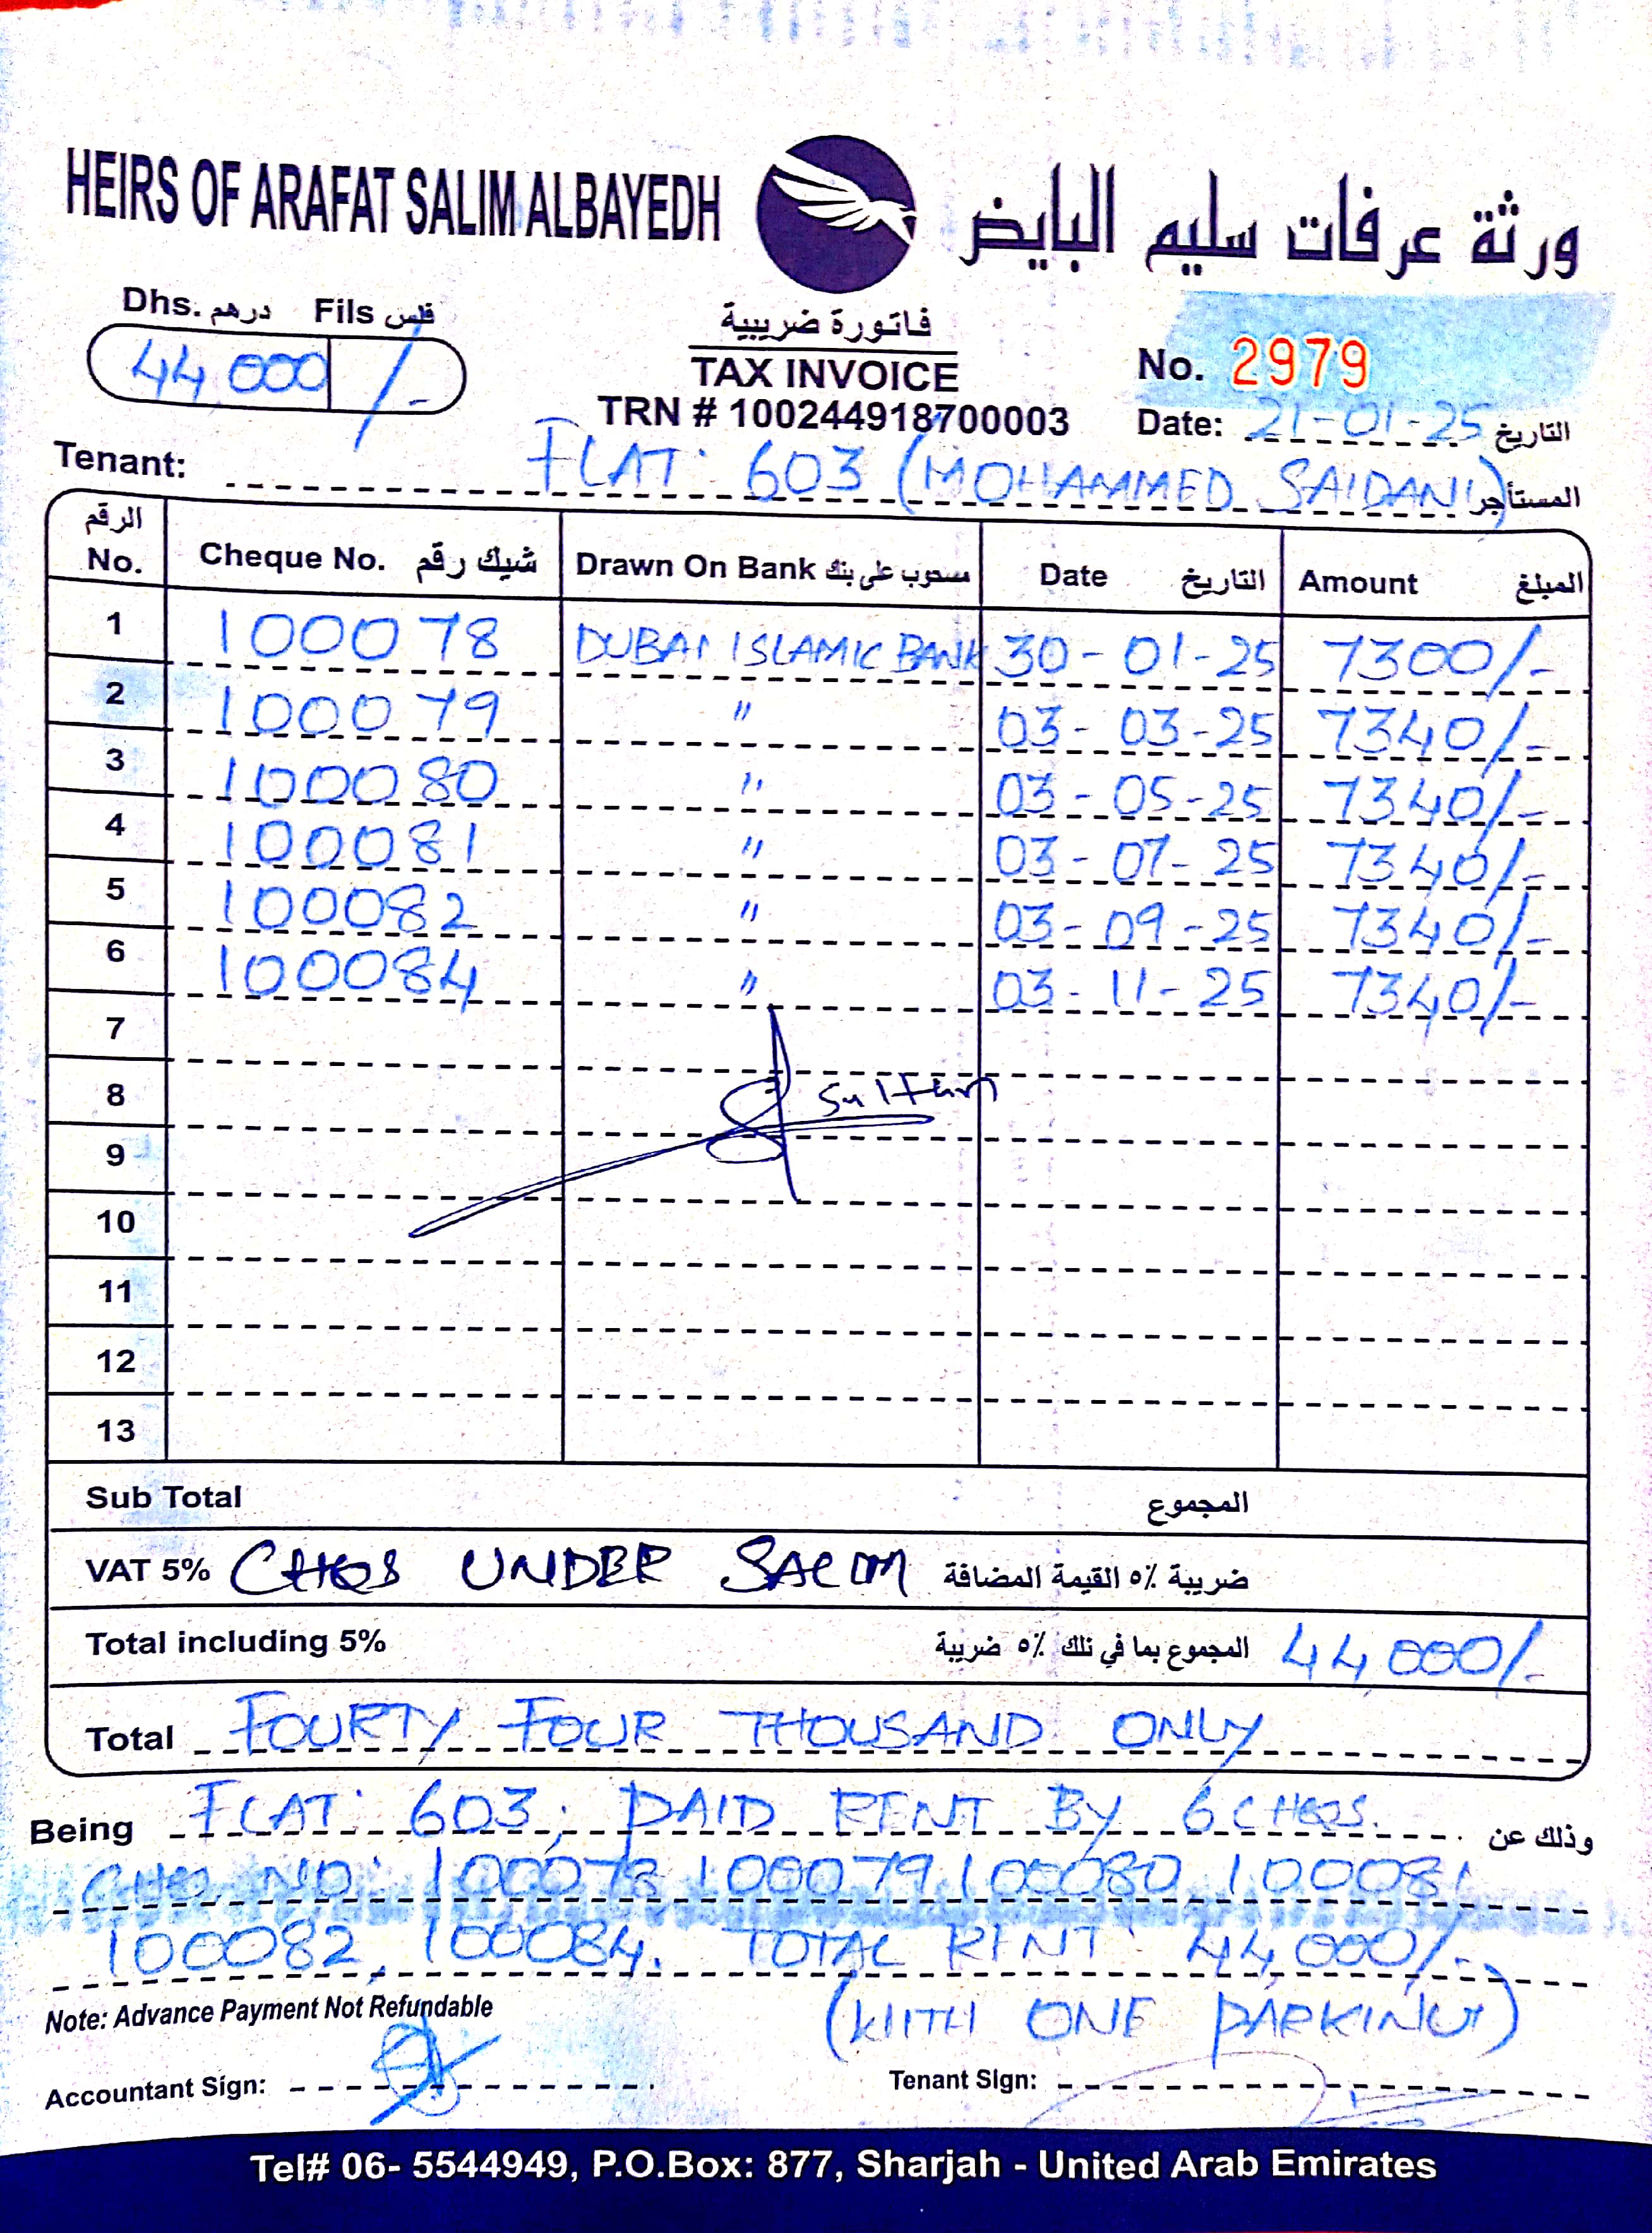 HEIRS OF ARAFAT SALIM ALBAYEDH ورثة عرفات سليم البايض
Dhs. درهم Fils فلس
44,000 /-
فاتورة ضريبية
TAX INVOICE
TRN # 100244918700003
No. 2979
Date: 21-01-25 التاريخ
Tenant: FLAT: 603 (MOHAMMED SAIDANI) المستأجر
الرقم No. Cheque No. شيك رقم Drawn On Bank مسحوب على بنك Date التاريخ Amount المبلغ
1 100078 DUBAI ISLAMIC BANK 30-01-25 7300/-
2 100079 " 03-03-25 7340/-
3 100080 " 03-05-25 7340/-
4 100081 " 03-07-25 7340/-
5 100082 " 03-09-25 7340/-
6 100084 " 03-11-25 7340/-
7
8 Sultan
9
10
11
12
13
Sub Total المجموع
VAT 5% CHQS UNDER SALIM ضريبة ٥٪ القيمة المضافة
Total including 5% المجموع بما في ذلك ٥٪ ضريبة 44,000/-
Total FOURTY FOUR THOUSAND ONLY
Being FLAT: 603, PAID RENT BY 6 CHQS. وذلك عن
CHQ NO: 100078 100079 100080 100081
100082, 100084. TOTAL RENT: 44,000/-
(WITH ONE PARKING)
Note: Advance Payment Not Refundable
Accountant Sign: Tenant Sign:
Tel# 06- 5544949, P.O.Box: 877, Sharjah - United Arab Emirates